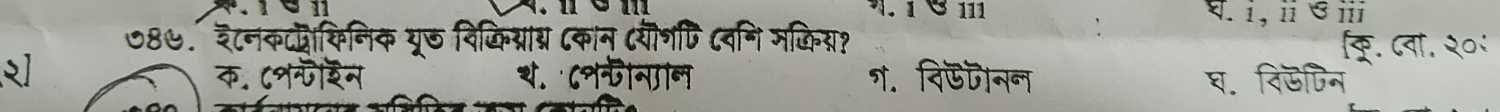 ক. i ও ii ii ও iii গ. i ও iii ঘ. i, ii ও iii
৩৪৬. ইলেকট্রোফিলিক যুত বিক্রিয়ায় কোন যৌগটি বেশি সক্রিয়? [কু. বো. ২০
২] ক. পেন্টাইন খ. পেন্টান্যাল গ. বিউটানল ঘ. বিউটিন